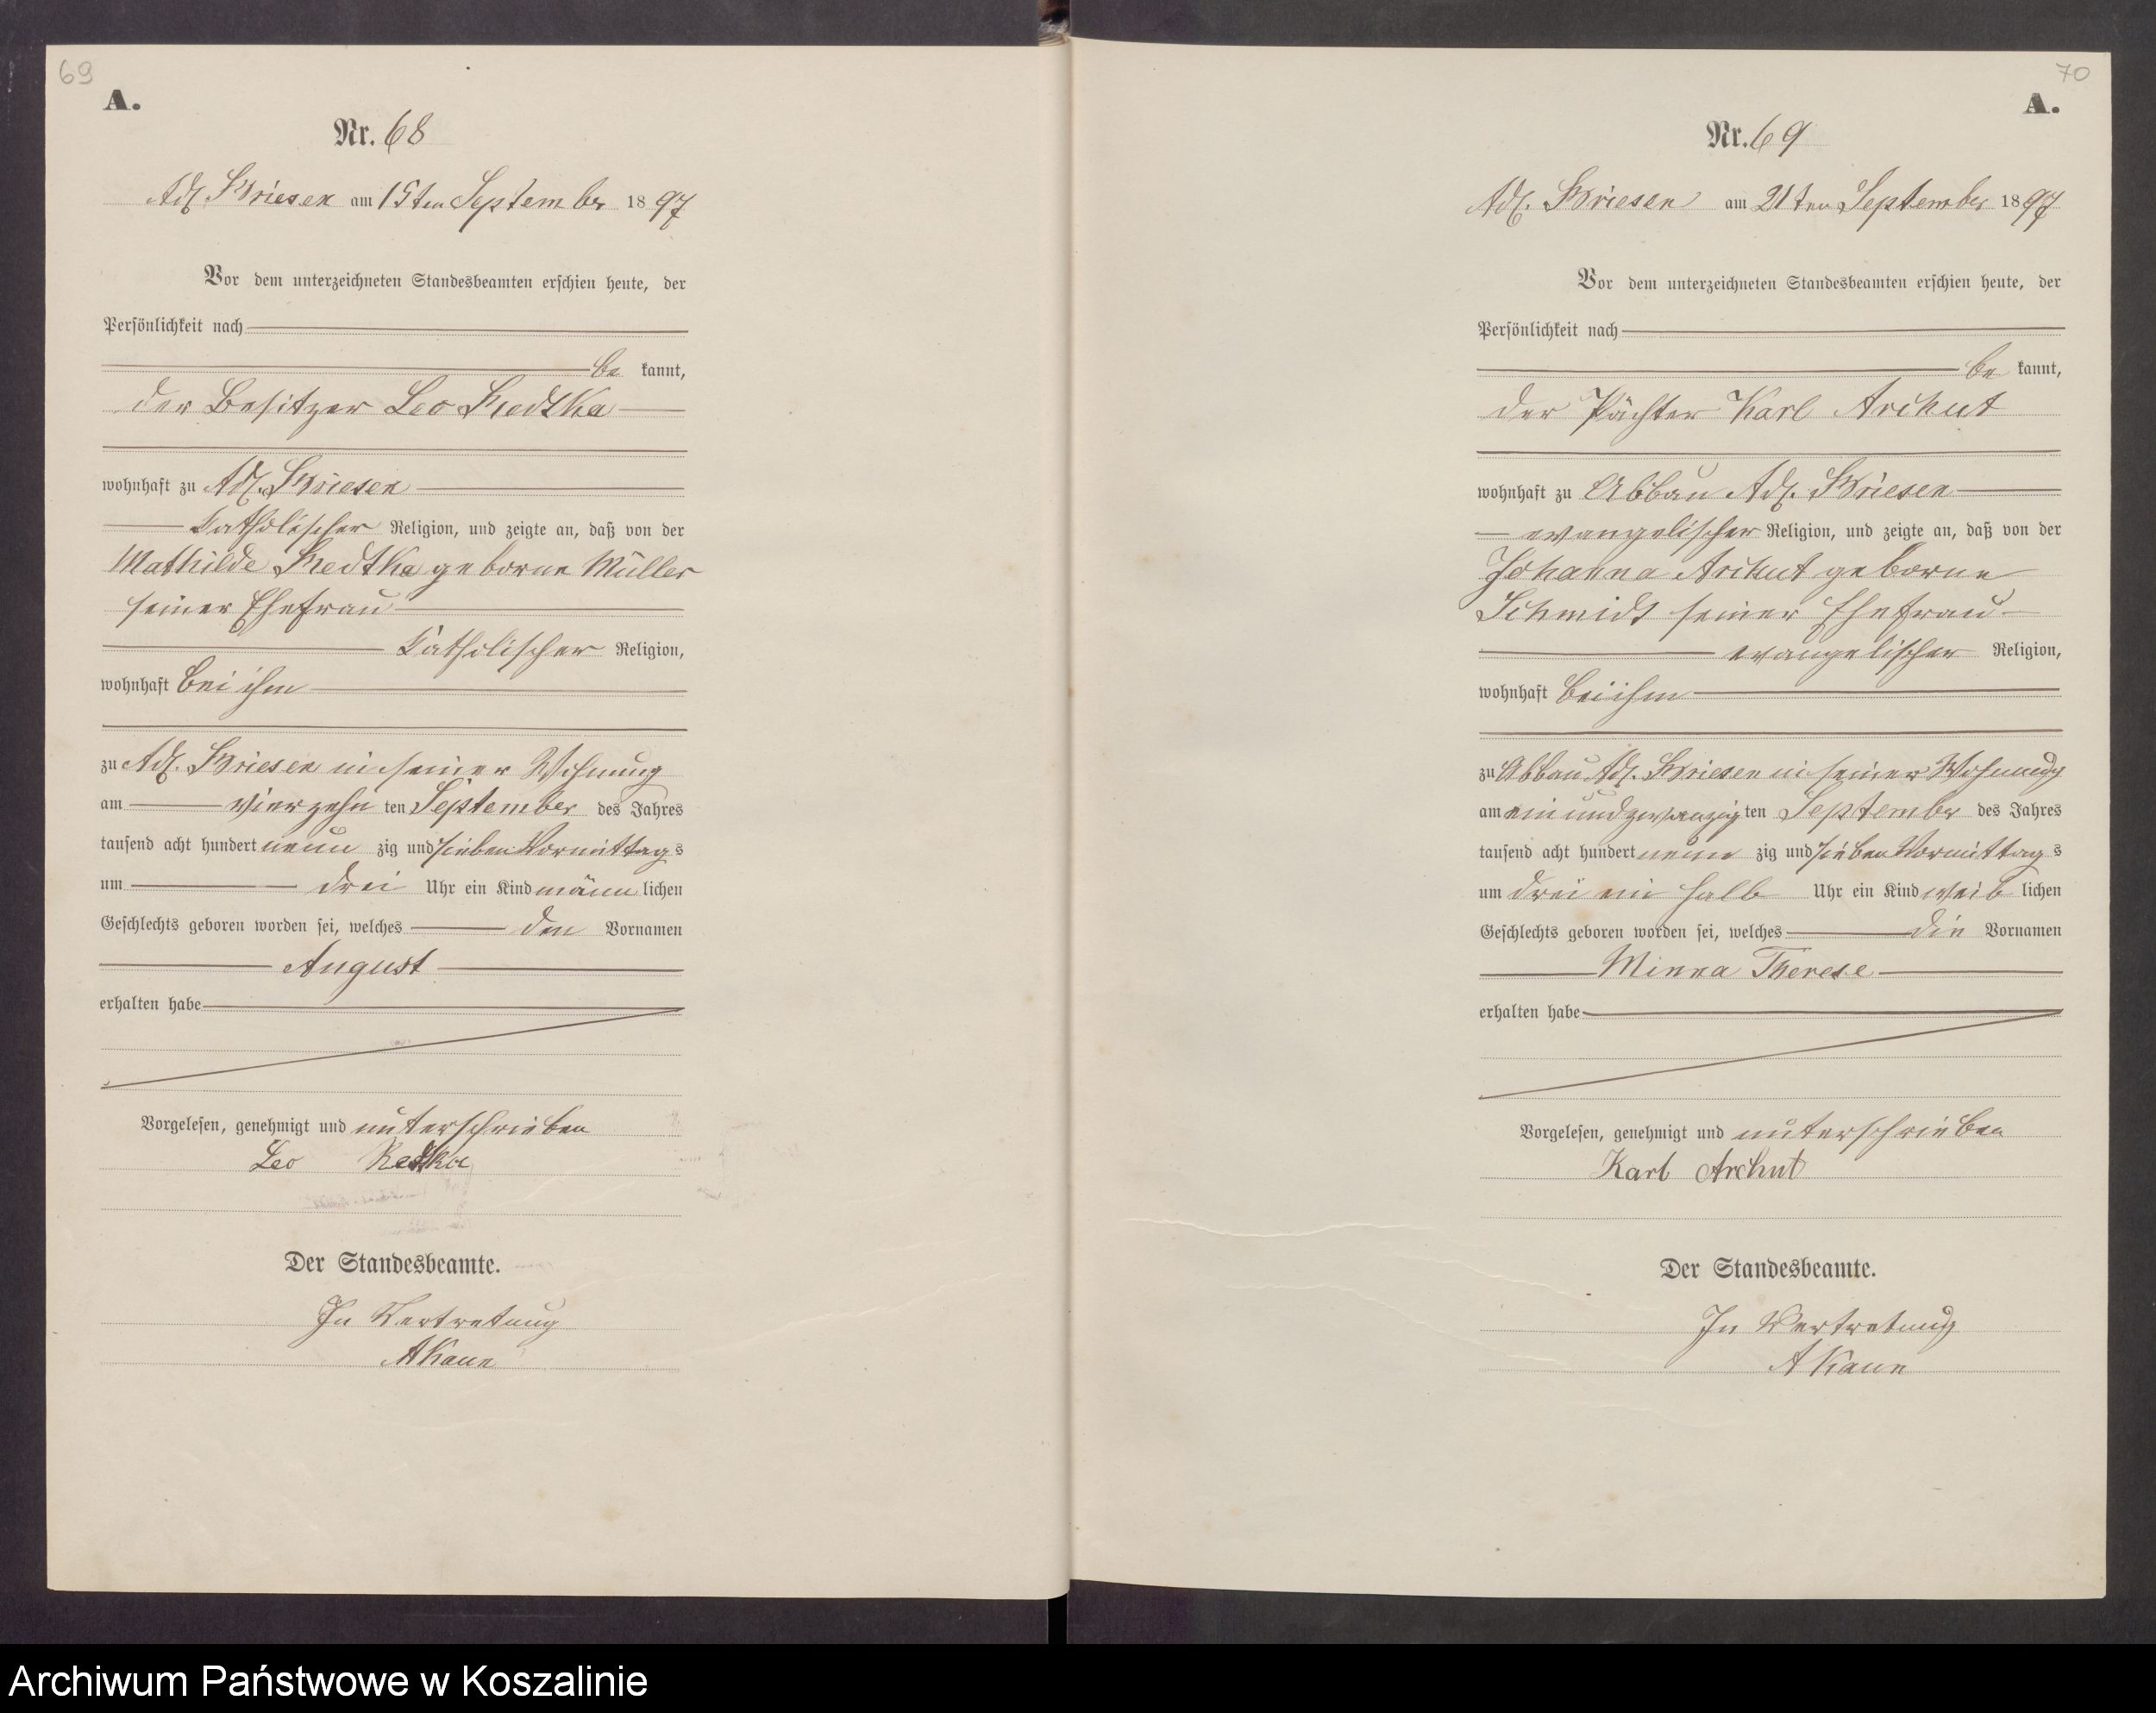 69
A.
Nr. 68
Adl. Briesen am 15ten September 1897
Vor dem unterzeichneten Standesbeamten erschien heute, der
Persönlichkeit nach
be kannt,
der Besitzer Leo Redtka
wohnhaft zu Adl. Briesen
katholischer Religion, und zeigte an, daß von der
Mathilde Redtka geborne Müller
seiner Ehefrau
katholischer Religion,
wohnhaft bei ihm
zu Adl. Briesen in seiner Wohnung
am vierzehn ten September des Jahres
tausend acht hundert neun zig und sieben Vormittags
um drei Uhr ein Kind männ lichen
Geschlechts geboren worden sei, welches den Vornamen
August
erhalten habe
Vorgelesen, genehmigt und unterschrieben
Leo Redtka
Der Standesbeamte.
In Vertretung
A Kaun
70
A.
Nr. 69
Adl. Briesen am 21ten September 1897
Vor dem unterzeichneten Standesbeamten erschien heute, der
Persönlichkeit nach
be kannt,
der Pächter Karl Archut
wohnhaft zu Abbau Adl. Briesen
evangelischer Religion, und zeigte an, daß von der
Johanna Archut geborne
Schmidt seiner Ehefrau
evangelischer Religion,
wohnhaft bei ihm
zu Abbau Adl. Briesen in seiner Wohnung
am ein und zwanzig ten September des Jahres
tausend acht hundert neun zig und sieben Vormittags
um drei ein halb Uhr ein Kind weib lichen
Geschlechts geboren worden sei, welches die Vornamen
Minna Therese
erhalten habe
Vorgelesen, genehmigt und unterschrieben
Karl Archut
Der Standesbeamte.
In Vertretung
A Kaun
Archiwum Państwowe w Koszalinie